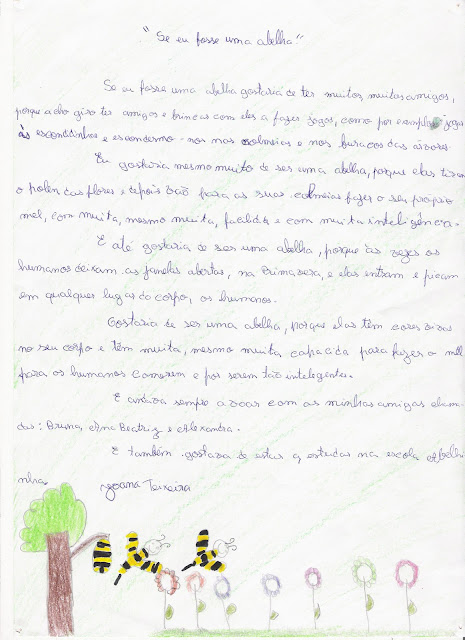 "Se eu fosse uma abelha!"
Se eu fosse uma abelha gostaria de ter muitos, muitos amigos,
porque acho giro ter amigos e brincar com eles a fazer jogos, como por exemplo jogar
às escondidinhas e escondermo-nos nas colmeias e nos buracos das árvores.
Eu gostaria mesmo muito de ser uma abelha, porque elas tiram
o polén das flores e depois vão para as suas colmeias fazer o seu próprio
mel, com muita, mesmo muita, facilidade e com muita inteligência.
E até gostaria de ser uma abelha, porque às vezes os
humanos deixam as janelas abertas, na Primavera, e elas entram e picam
em qualquer lugar do corpo, os humanos.
Gostaria de ser uma abelha, porque elas têm cores vivas
no seu corpo e têm muita, mesmo muita capacida para fazer o mel
para os humanos comerem e por serem tão intelegentes.
E andava sempre a voar com as minhas amigas chama-
das: Bruna, Ana Beatriz e Alexandra.
E também gostava de estar a estudar na escola Abelhi
nha.
Joana Teixeira